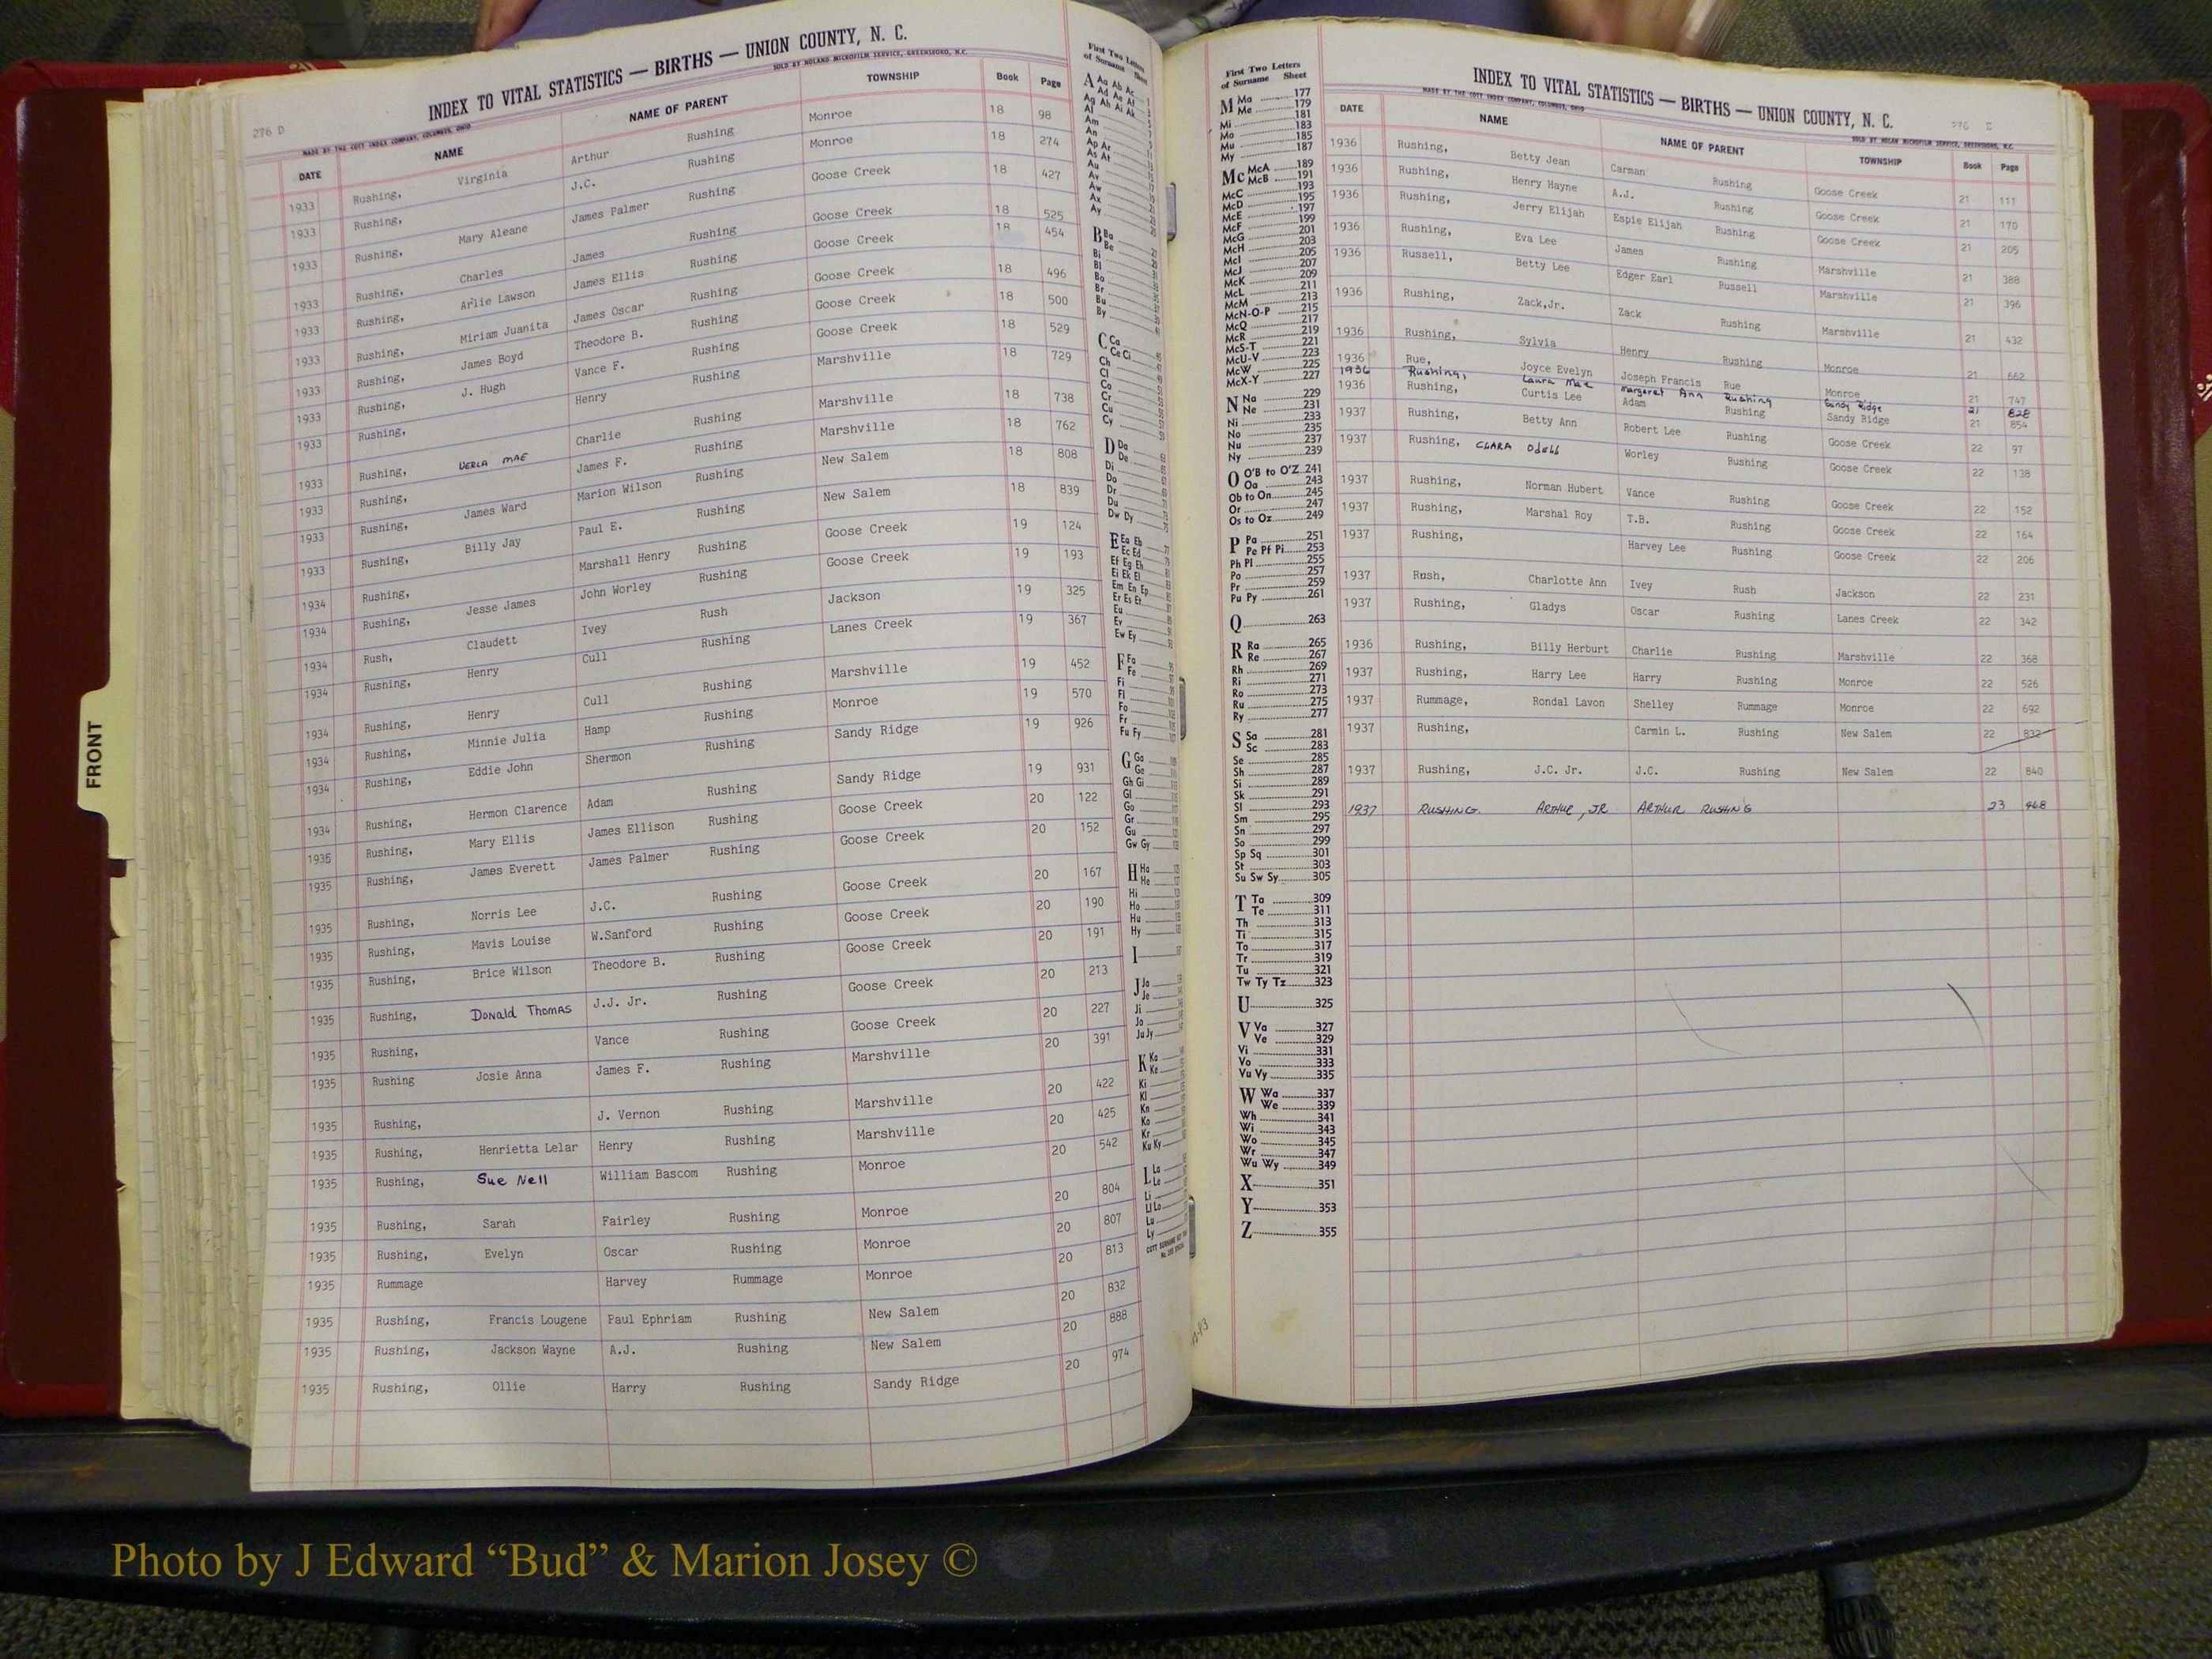 276 D
INDEX TO VITAL STATISTICS — BIRTHS — UNION COUNTY, N. C.
MADE BY THE COTT INDEX COMPANY, COLUMBUS, OHIO SOLD BY NOLAND MICROFILM SERVICE, GREENSBORO, N.C.
DATE NAME NAME OF PARENT TOWNSHIP Book Page
1933 Rushing, Virginia Arthur Rushing Monroe 18 98
1933 Rushing, J.C. Rushing Monroe 18 274
1933 Rushing, Mary Aleane James Palmer Rushing Goose Creek 18 427
1933 Rushing, Charles James Rushing Goose Creek 18 525
1933 Rushing, Arlie Lawson James Ellis Rushing Goose Creek 18 454
1933 Rushing, Miriam Juanita James Oscar Rushing Goose Creek 18 496
1933 Rushing, James Boyd Theodore B. Rushing Goose Creek 18 500
1933 Rushing, J. Hugh Vance F. Rushing Goose Creek 18 529
1933 Rushing, Henry Rushing Marshville 18 729
1933 Rushing, VERLA MAE Charlie Rushing Marshville 18 738
1933 Rushing, James F. Rushing Marshville 18 762
1933 Rushing, James Ward Marion Wilson Rushing New Salem 18 808
1933 Rushing, Billy Jay Paul E. Rushing New Salem 18 839
1934 Rushing, Marshall Henry Rushing Goose Creek 19 124
1934 Rushing, Jesse James John Worley Rushing Goose Creek 19 193
1934 Rush, Claudett Ivey Rush Jackson 19 325
1934 Rushing, Henry Cull Rushing Lanes Creek 19 367
1934 Rushing, Henry Cull Rushing Marshville 19 452
1934 Rushing, Minnie Julia Hamp Rushing Monroe 19 570
1934 Rushing, Eddie John Shermon Rushing Sandy Ridge 19 926
1934 Rushing, Hermon Clarence Adam Rushing Sandy Ridge 19 931
1935 Rushing, Mary Ellis James Ellison Rushing Goose Creek 20 122
1935 Rushing, James Everett James Palmer Rushing Goose Creek 20 152
1935 Rushing, Norris Lee J.C. Rushing Goose Creek 20 167
1935 Rushing, Mavis Louise W.Sanford Rushing Goose Creek 20 190
1935 Rushing, Brice Wilson Theodore B. Rushing Goose Creek 20 191
1935 Rushing, Donald Thomas J.J. Jr. Rushing Goose Creek 20 213
1935 Rushing, Vance Rushing Goose Creek 20 227
1935 Rushing Josie Anna James F. Rushing Marshville 20 391
1935 Rushing, J. Vernon Rushing Marshville 20 422
1935 Rushing, Henrietta Lelar Henry Rushing Marshville 20 425
1935 Rushing, Sue Nell William Bascom Rushing Monroe 20 542
1935 Rushing, Sarah Fairley Rushing Monroe 20 804
1935 Rushing, Evelyn Oscar Rushing Monroe 20 807
1935 Rummage Harvey Rummage Monroe 20 813
1935 Rushing, Francis Lougene Paul Ephriam Rushing New Salem 20 832
1935 Rushing, Jackson Wayne A.J. Rushing New Salem 20 888
1935 Rushing, Ollie Harry Rushing Sandy Ridge 20 974
First Two Letters
of Surname Sheet
A Aa Ab Ac
Ad Ae Af
Ag Ah Ai Ak
Al
Am
An
Ap Ar
As At
Au
Av
Aw
Ax
Ay
B Ba
Be
Bi
Bl
Bo
Br
Bu
By
C Ca
Ce Ci
Ch
Cl
Co
Cr
Cu
Cy
D Da
De
Di
Do
Dr
Du
Dw Dy
E Ea Eb
Ec Ed
Ef Eg Eh
Ei Ek El
Em En Ep
Er Es Et
Eu
Ev
Ew Ey
F Fa
Fe
Fi
Fl
Fo
Fr
Fu Fy
G Ga
Ge
Gh Gi
Gl
Go
Gr
Gu
Gw Gy
H Ha
He
Hi
Ho
Hu
Hy
I
J Ja
Je
Ji
Jo
Ju Jy
K Ka
Ke
Ki
Kl
Kn
Ko
Kr
Ku Ky
L La
Le
Li
Ll Lo
Lu
Ly
First Two Letters
of Surname Sheet
M Ma 177
Me 179
Mi 181
Mo 183
Mu 185
My 187
Mc McA 189
McB 191
McC 193
McD 195
McE 197
McF 199
McG 201
McH 203
McI 205
McJ 207
McK 209
McL 211
McM 213
McN-O-P 215
McQ 217
McR 219
McS-T 221
McU-V 223
McW 225
McX-Y 227
N Na 229
Ne 231
Ni 233
No 235
Nu 237
Ny 239
O O'B to O'Z 241
Oa 243
Ob to On 245
Or 247
Os to Oz 249
P Pa 251
Pe Pf Pi 253
Ph Pl 255
Po 257
Pr 259
Pu Py 261
Q 263
R Ra 265
Re 267
Rh 269
Ri 271
Ro 273
Ru 275
Ry 277
S Sa 281
Sc 283
Se 285
Sh 287
Si 289
Sk 291
Sl 293
Sm 295
Sn 297
So 299
Sp Sq 301
St 303
Su Sw Sy 305
T Ta 309
Te 311
Th 313
Ti 315
To 317
Tr 319
Tu 321
Tw Ty Tz 323
U 325
V Va 327
Ve 329
Vi 331
Vo 333
Vu Vy 335
W Wa 337
We 339
Wh 341
Wi 343
Wo 345
Wr 347
Wu Wy 349
X 351
Y 353
Z 355
276 E
INDEX TO VITAL STATISTICS — BIRTHS — UNION COUNTY, N. C.
MADE BY THE COTT INDEX COMPANY, COLUMBUS, OHIO
DATE NAME NAME OF PARENT TOWNSHIP Book Page
1936 Rushing, Betty Jean Carman Rushing Goose Creek 21 111
1936 Rushing, Henry Hayne A.J. Rushing Goose Creek 21 170
1936 Rushing, Jerry Elijah Espie Elijah Rushing Goose Creek 21 205
1936 Rushing, Eva Lee James Rushing Marshville 21 388
1936 Russell, Betty Lee Edger Earl Russell Marshville 21 396
1936 Rushing, Zack,Jr. Zack Rushing Marshville 21 432
1936 Rushing, Sylvia Henry Rushing Monroe 21 662
1936 Rue, Joyce Evelyn Joseph Francis Rue Monroe 21 747
1936 Rushing, Laura Mae Margaret Ann Rushing Sandy Ridge 21 828
1936 Rushing, Curtis Lee Adam Rushing Sandy Ridge 21 854
1937 Rushing, Betty Ann Robert Lee Rushing Goose Creek 22 97
1937 Rushing, CLARA Odell Worley Rushing Goose Creek 22 138
1937 Rushing, Norman Hubert Vance Rushing Goose Creek 22 152
1937 Rushing, Marshal Roy T.B. Rushing Goose Creek 22 164
1937 Rushing, Harvey Lee Rushing Goose Creek 22 206
1937 Rush, Charlotte Ann Ivey Rush Jackson 22 231
1937 Rushing, Gladys Oscar Rushing Lanes Creek 22 342
1936 Rushing, Billy Herburt Charlie Rushing Marshville 22 368
1937 Rushing, Harry Lee Harry Rushing Monroe 22 526
1937 Rummage, Rondal Lavon Shelley Rummage Monroe 22 692
1937 Rushing, Carmin L. Rushing New Salem 22 832
1937 Rushing, J.C. Jr. J.C. Rushing New Salem 22 840
1937 RUSHING. ARTHUR, JR ARTHUR RUSHING 23 468
FRONT
Photo by J Edward “Bud” & Marion Josey ©